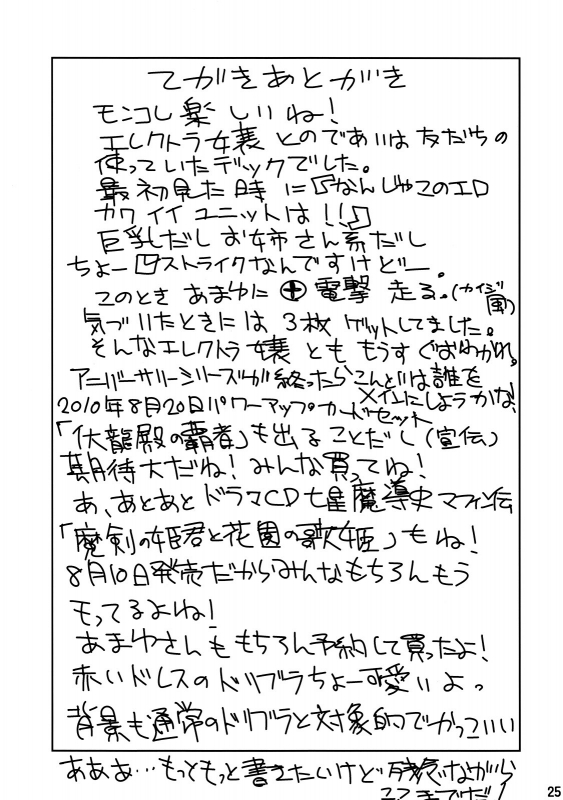 てがきあとがき
モンコレ楽しいね!
エレクトラ嬢とのであいは友だちの
使っていたデックでした。
最初見た時に『なんじゃこのエロ
カワイイユニットは!!』
巨乳だしお姉さん系だし
ちょーストライクなんですけどー。
このときあまゆに⊕電撃走る。(カイジ風)
気づいたときには3枚ゲットしてました。
そんなエレクトラ嬢とももうすぐおわかれ。
アニバーサリーシリーズが終ったらこんどは誰を
メインにしようかな!
2010年8月20日パワーアップカードセット
「伏龍殿の覇者」も出ることだし(宣伝)
期待大だね!みんな買ってね!
あ、あとあとドラマCD七星魔導史マフィン伝
「魔剣の姫君と花園の歌姫」もね!
8月10日発売だからみんなもちろんもう
もってるよね!
あまゆさんももちろん予約して買ったよ!
赤いドレスのドリブラちょー可愛いよっ
背景も通常のドリブラと対象的でかっこいい
あああ…もっともっと書きたいけど残念ながら
ここまでだ!
25